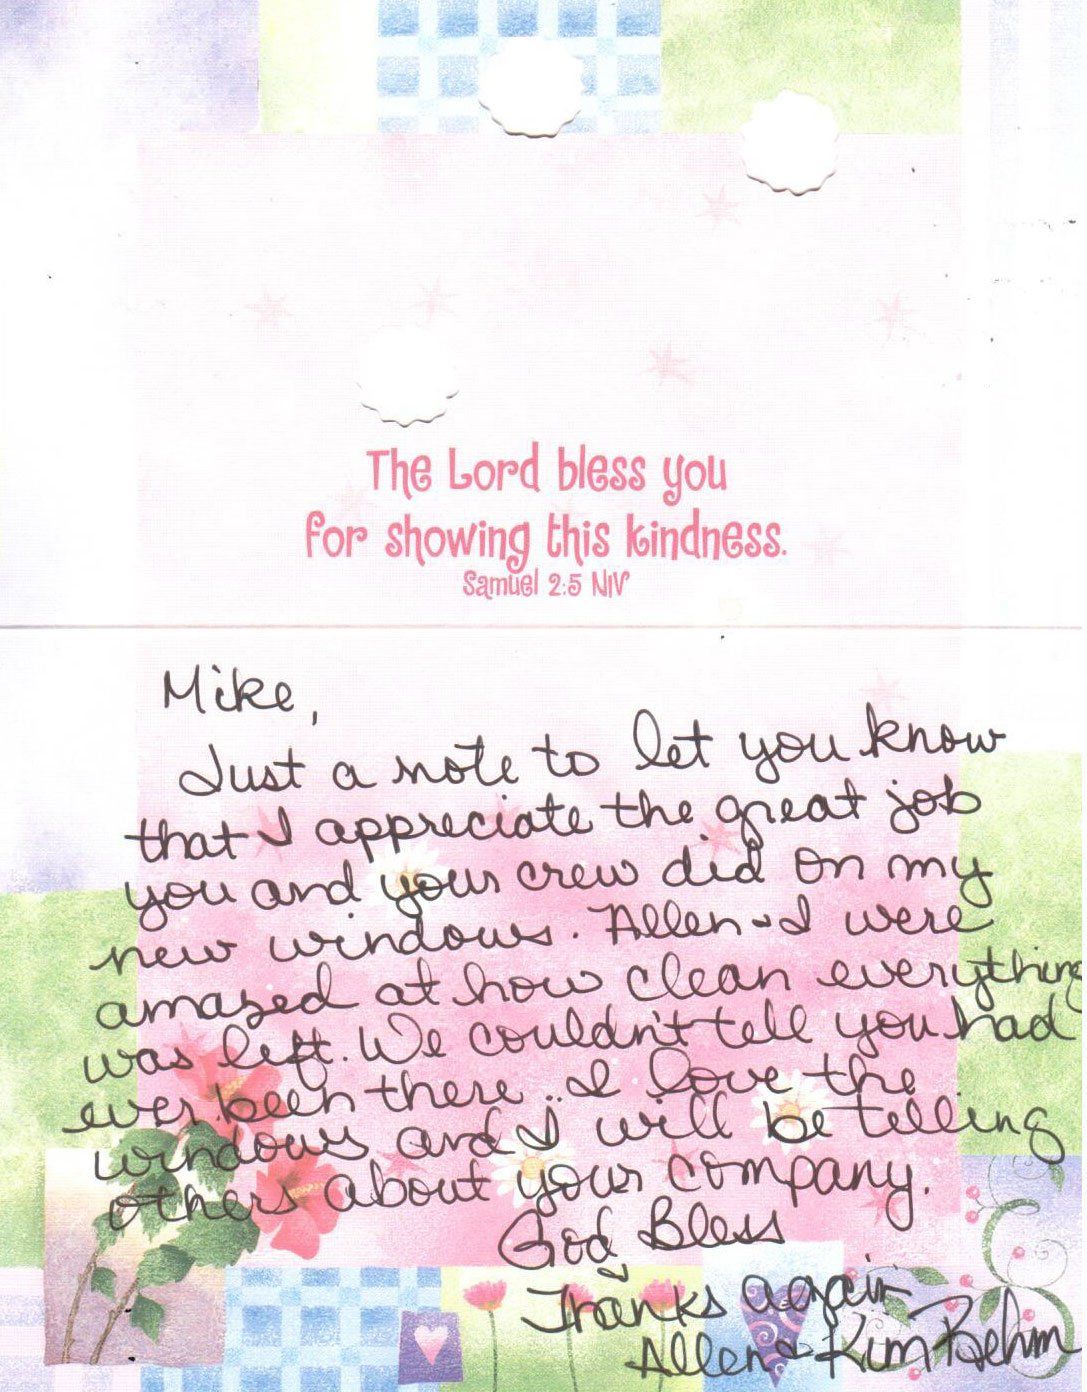 The Lord bless you
for showing this kindness.
Samuel 2:5 NIV
Mike,
Just a note to let you know
that I appreciate the great job
you and your crew did on my
new windows. Allen & I were
amazed at how clean everything
was left. We couldn't tell you had
ever been there. I love the
windows and I will be telling
others about your company.
God Bless
Thanks again
Allen & Kim Behm